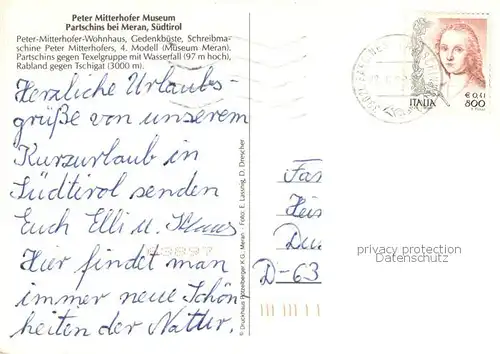 Peter Mitterhofer Museum
Partschins bei Meran, Südtirol
Peter-Mitterhofer-Wohnhaus, Gedenkbüste, Schreibma-
schine Peter Mitterhofers, 4. Modell (Museum Meran).
Partschins gegen Texelgruppe mit Wasserfall (97 m hoch),
Rabland gegen Tschigat (3000 m).
Herzliche Urlaubs-
grüße von unserem
Kurzurlaub in
Südtirol senden
Euch Elli u. Klaus
Hier findet man
immer neue Schön
heiten der Natur.
63897
© Druckhaus Pötzelberger K.G., Meran - Foto: E. Lassnig, D. Drescher
ITALIA
€ 0,41
800
Fas
Heis
Du
D-63
privacy protection
Datenschutz